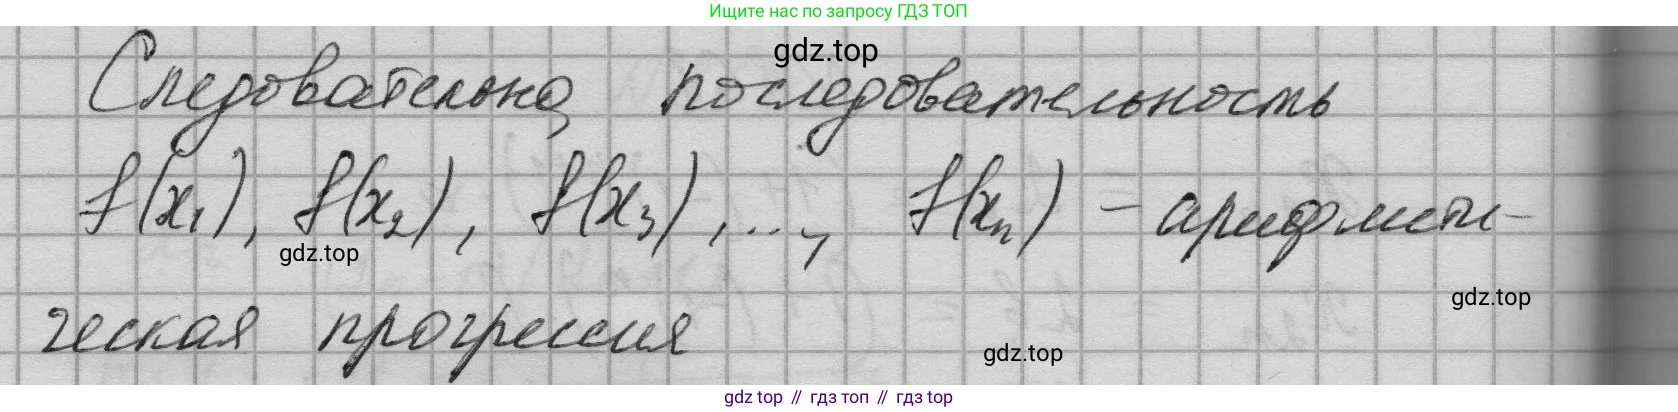 Ищите нас по запросу ГДЗ ТОП
gdz.top
Следовательно, последовательность
f(x₁), f(x₂), f(x₃), ..., f(xₙ) – арифмети-
gdz.top
gdz.top
ческая прогрессия
gdz.top
gdz top // гдз топ // гдз top